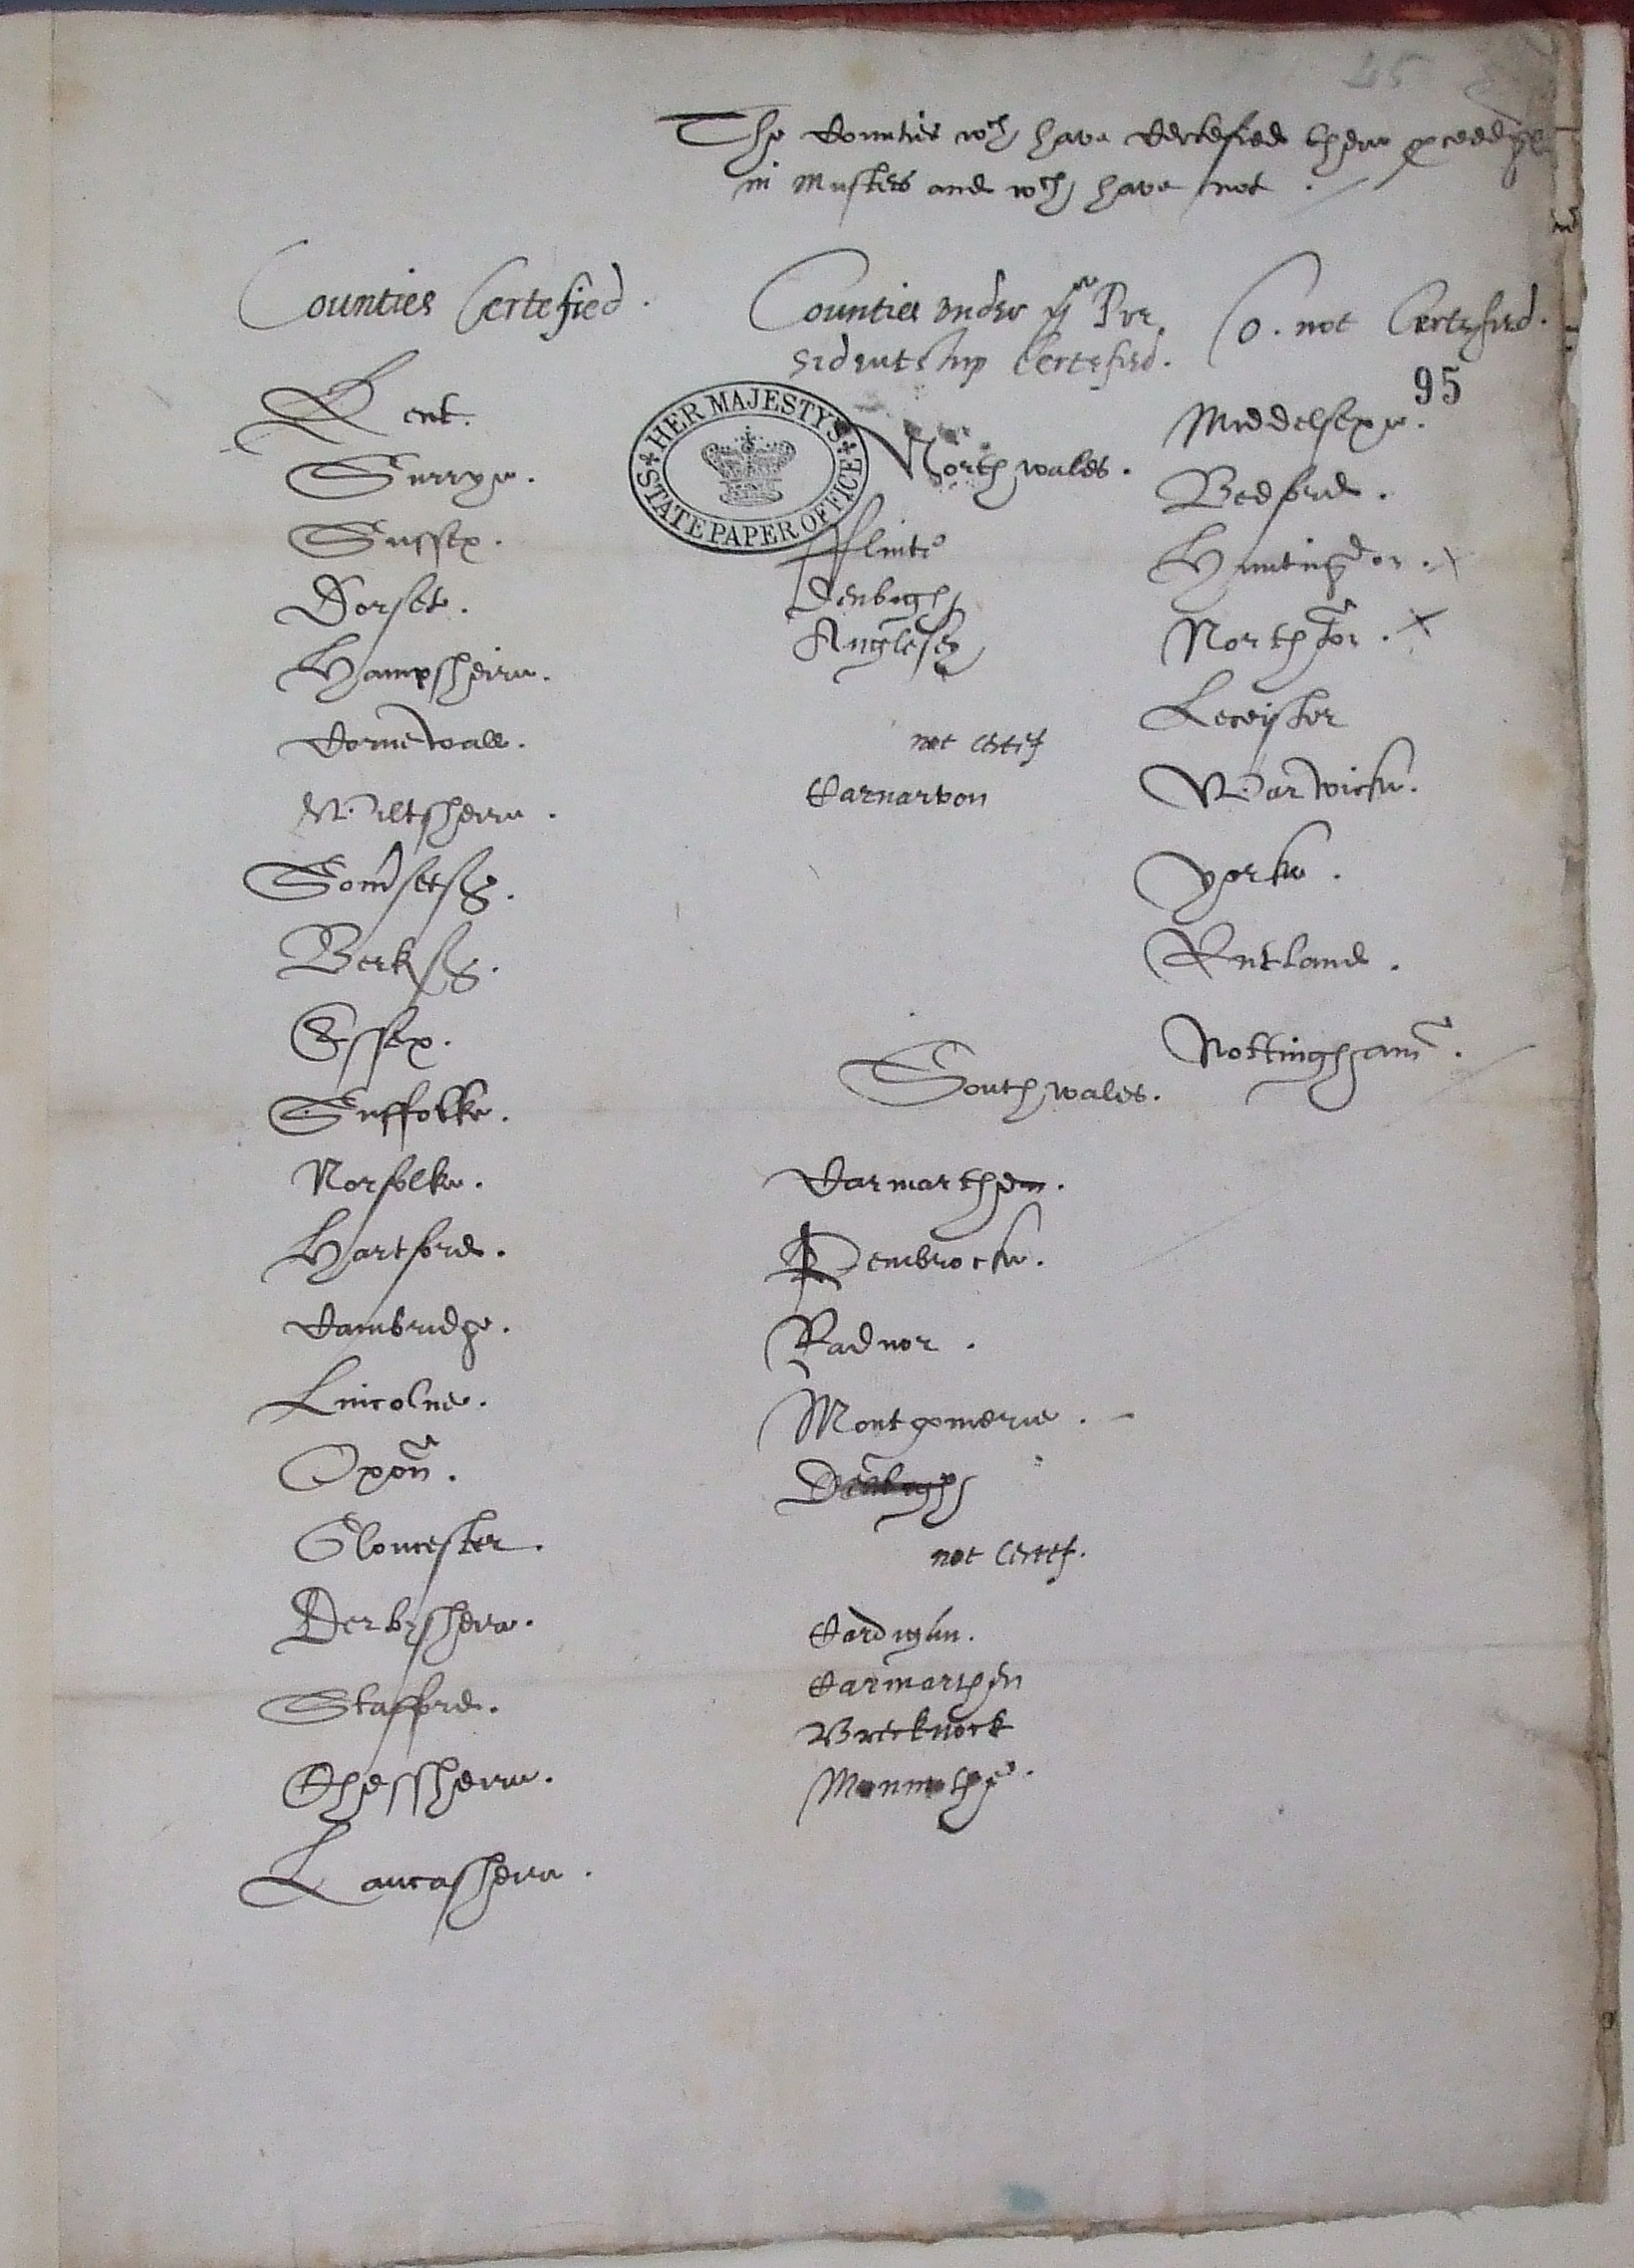 45
The Counties wch have Certefied their pceedyngs
in Musters and wch have not .
Counties Certefied .
Kent.
Surrye.
Sussex.
Dorset.
Hampsheire.
Cornewall.
Wiltsheire.
Somsetsh.
Berksh.
Essex.
Suffolke.
Norfolke.
Hartford.
Cambridge.
Lincolne.
Oxon.
Gloucester.
Derbysheire.
Stafford.
Chessheire.
Lancasheire.
Counties under ye Pre
sidentship Certefied.
HER MAJESTY'S
STATE PAPER OFFICE
North wales.
Flinte
Denbigh
Anglesey
not certef
Carnarvon
South wales.
Carmarthen.
Pembrocke.
Radnor .
Montgomerie .
Denbigh
not Certef.
Cardigan.
Carmarthen
Brecknock
Monmothe.
Co. not Certefied.
95
Middelsexe.
Bedford.
Huntingdon. x
Northton. x
Leceister
Warwicke.
Yorke.
Rutland.
Nottingham.